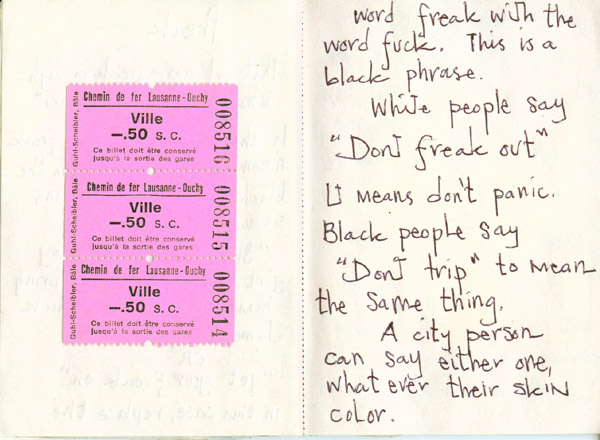 Chemin de fer Lausanne-Ouchy
Ville
—.50 S. C.
Ce billet doit être conservé
jusqu'à la sortie des gares
Guhl-Scheibler, Bâle
008516
Chemin de fer Lausanne-Ouchy
Ville
—.50 S. C.
Ce billet doit être conservé
jusqu'à la sortie des gares
Guhl-Scheibler, Bâle
008515
Chemin de fer Lausanne-Ouchy
Ville
—.50 S. C.
Ce billet doit être conservé
jusqu'à la sortie des gares
Guhl-Scheibler, Bâle
008514
word freak with the
word fuck. This is a
black phrase.
White people say
"Dont freak out"
It means don't panic.
Black people say
"Dont trip" to mean
the same thing.
A city person
can say either one,
what ever their skin
color.